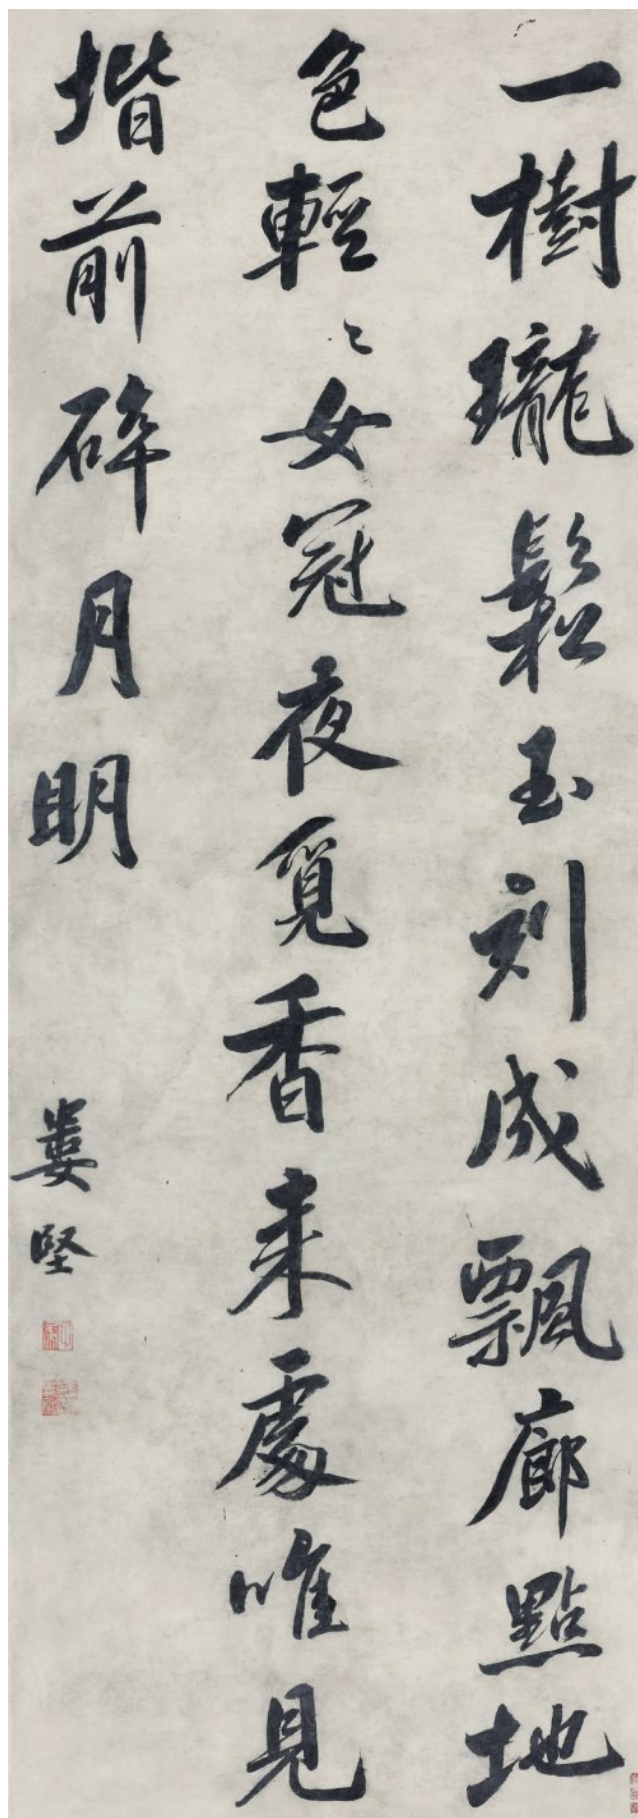 一樹瓏鬆玉刻成飄廊點地
色輕〻女冠夜覓香来處唯見
堦前碎月明
婁堅